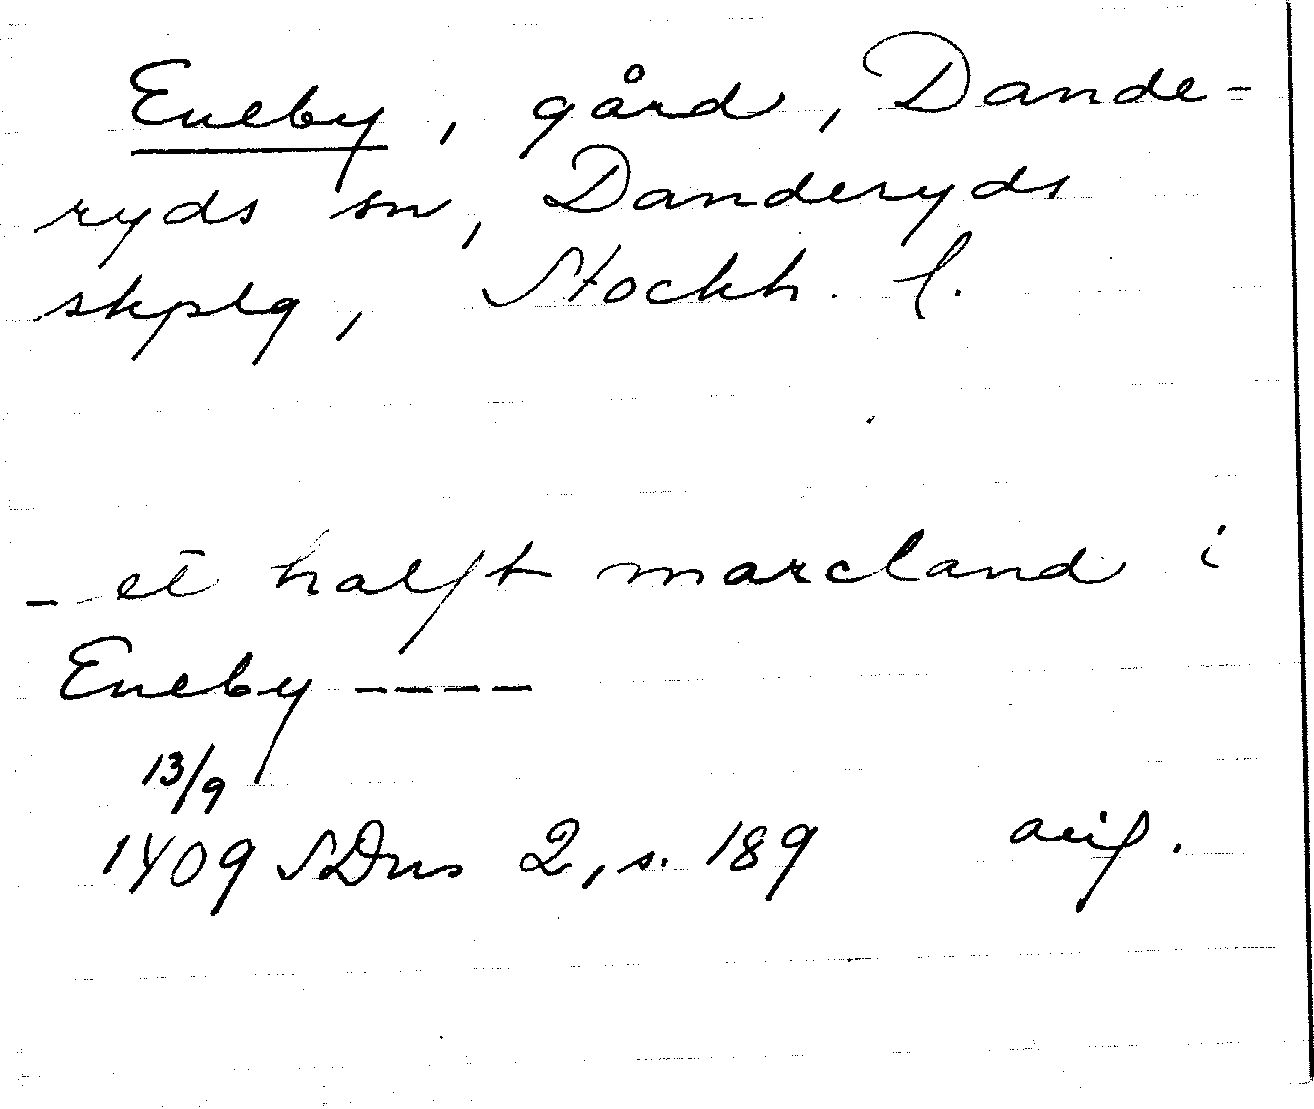 Eneby, gård, Dande-
ryds sn, Danderyds
skplg, Stockh. l.
- et halft marcland i
Eneby ----
13/9
1409 SDns 2, s. 189 avs.